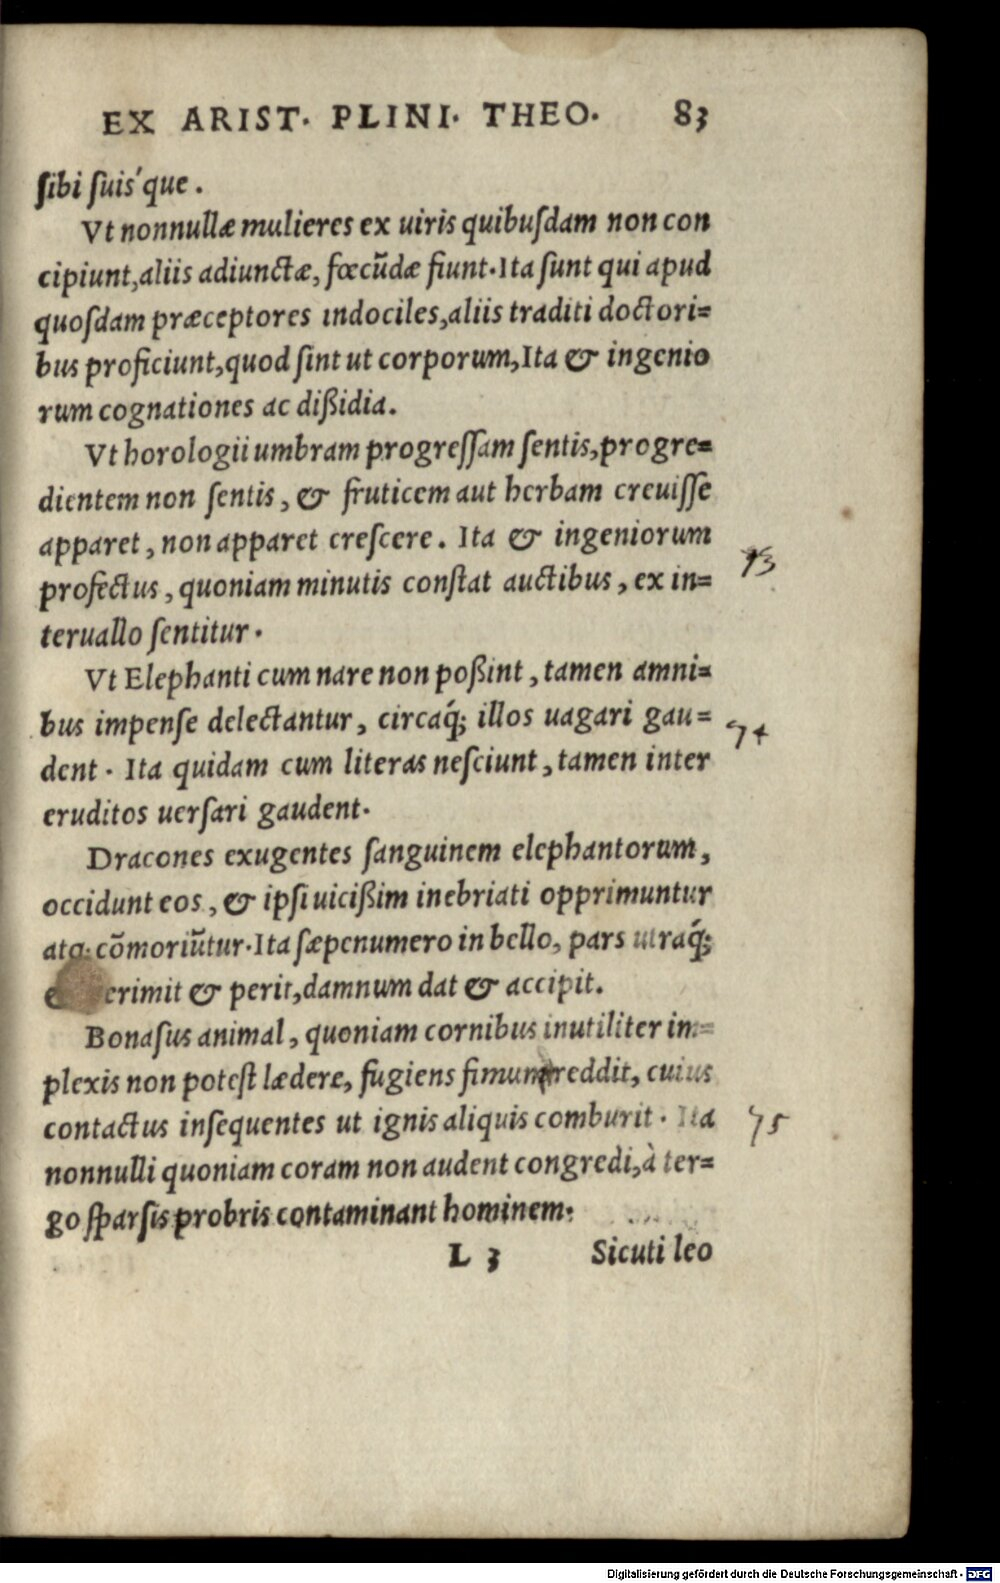 EX ARIST. PLINI. THEO. 83
ſibi ſuis'que.
Vt nonnullæ mulieres ex uiris quibuſdam non con
cipiunt, aliis adiunctæ, fœcūdæ fiunt. Ita ſunt qui apud
quoſdam præceptores indociles, aliis traditi doctori=
bus proficiunt, quod ſint ut corporum, Ita & ingenio
rum cognationes ac dißidia.
Vt horologii umbram progreſſam ſentis, progre=
dientem non ſentis, & fruticem aut herbam creuiſſe
apparet, non apparet creſcere. Ita & ingeniorum
profectus, quoniam minutis conſtat auctibus, ex in=
teruallo ſentitur.
73
Vt Elephanti cum nare non poßint, tamen amni=
bus impenſe delectantur, circaq́; illos uagari gau=
dent. Ita quidam cum literas neſciunt, tamen inter
eruditos uerſari gaudent.
74
Dracones exugentes ſanguinem elephantorum,
occidunt eos, & ipſi uicißim inebriati opprimuntur
atq; cōmoriūtur. Ita ſæpenumero in bello, pars utraq́;
erimit & perit, damnum dat & accipit.
Bonaſus animal, quoniam cornibus inutiliter im=
plexis non poteſt lædere, fugiens fimum reddit, cuius
contactus inſequentes ut ignis aliquis comburit. Ita
nonnulli quoniam coram non audent congredi, à ter=
go ſparſis probris contaminant hominem.
75
L 3 Sicuti leo
Digitalisierung gefördert durch die Deutsche Forschungsgemeinschaft - DFG